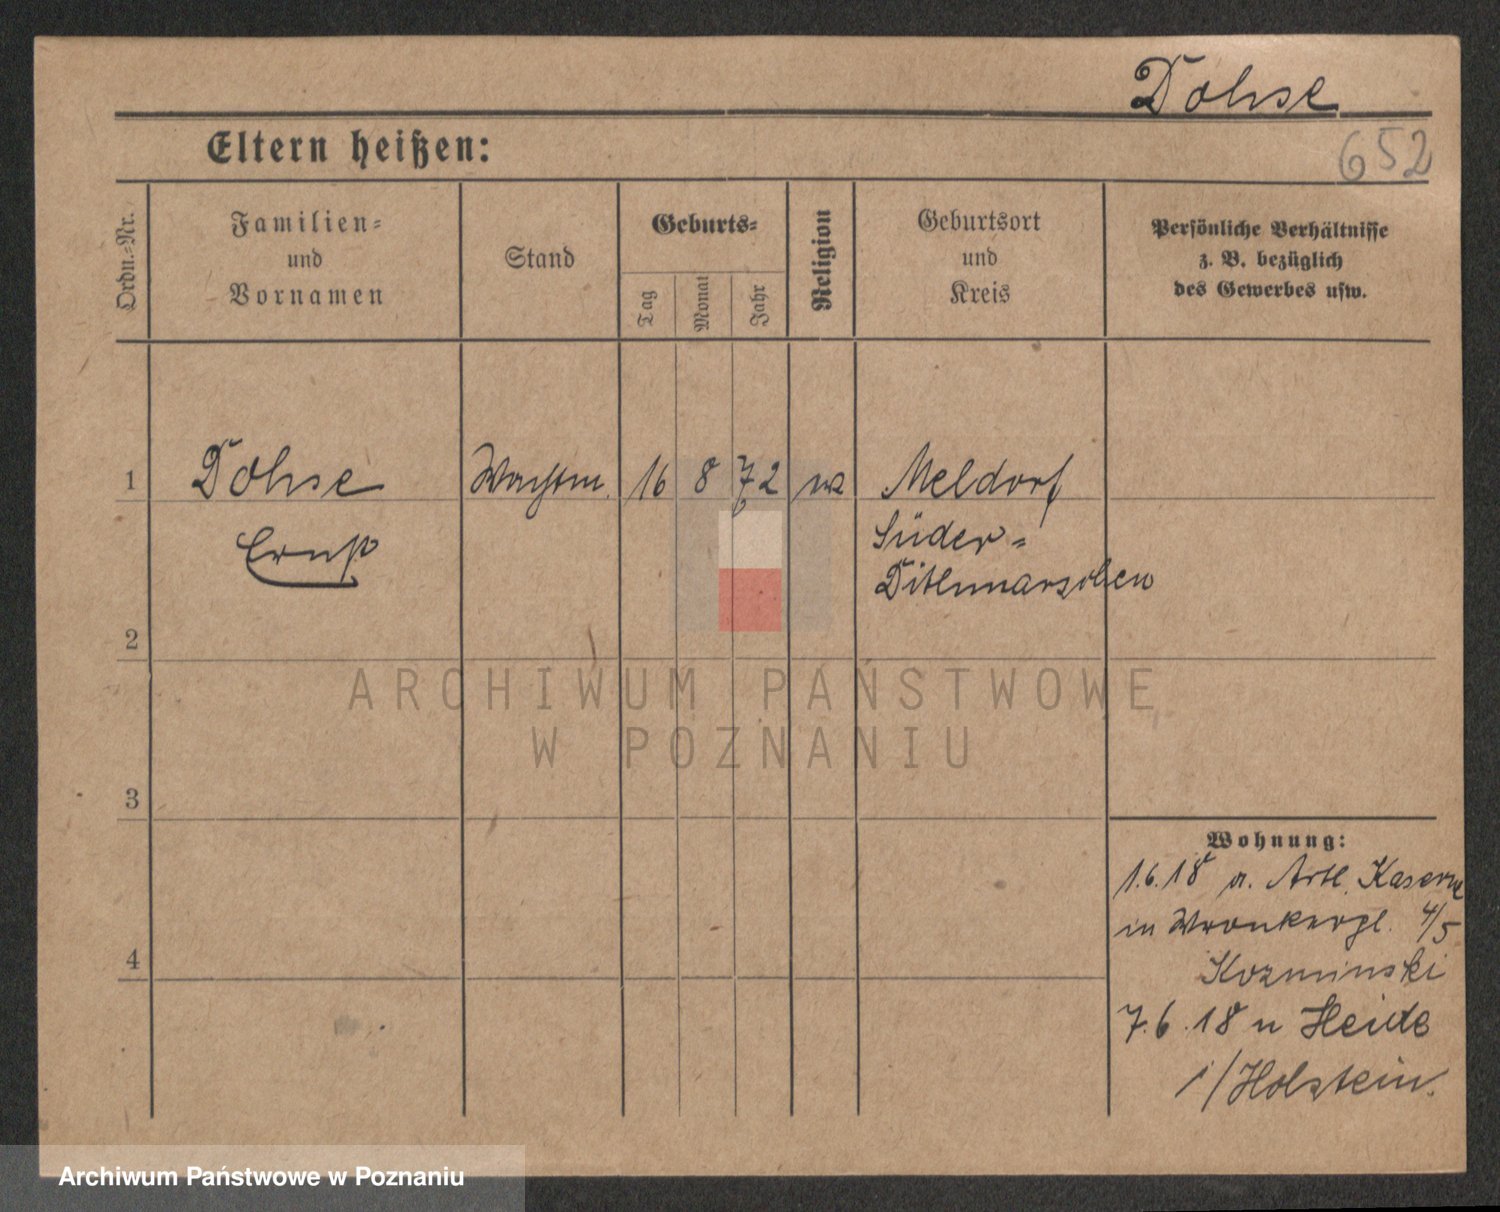 Dohse
Eltern heißen:
652
Ordn.-Nr.
Familien-
und
Vornamen
Stand
Geburts-
Tag
Monat
Jahr
Religion
Geburtsort
und
Kreis
Persönliche Verhältnisse
z. B. bezüglich
des Gewerbes usw.
1 Dohse Wachtm. 16 8 72 Meldorf
Ernst
Süder-
Dithmarschen
2
3
4
Wohnung:
1.6.18 a. Artl. Kaserne
in Wronkergl. 4/5
Kozminski
7.6.18 n Heide
i/Holstein.
ARCHIWUM PAŃSTWOWE
W POZNANIU
Archiwum Państwowe w Poznaniu